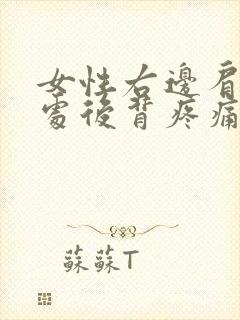 女性右邊肩
處後背疼痛
蘇蘇T